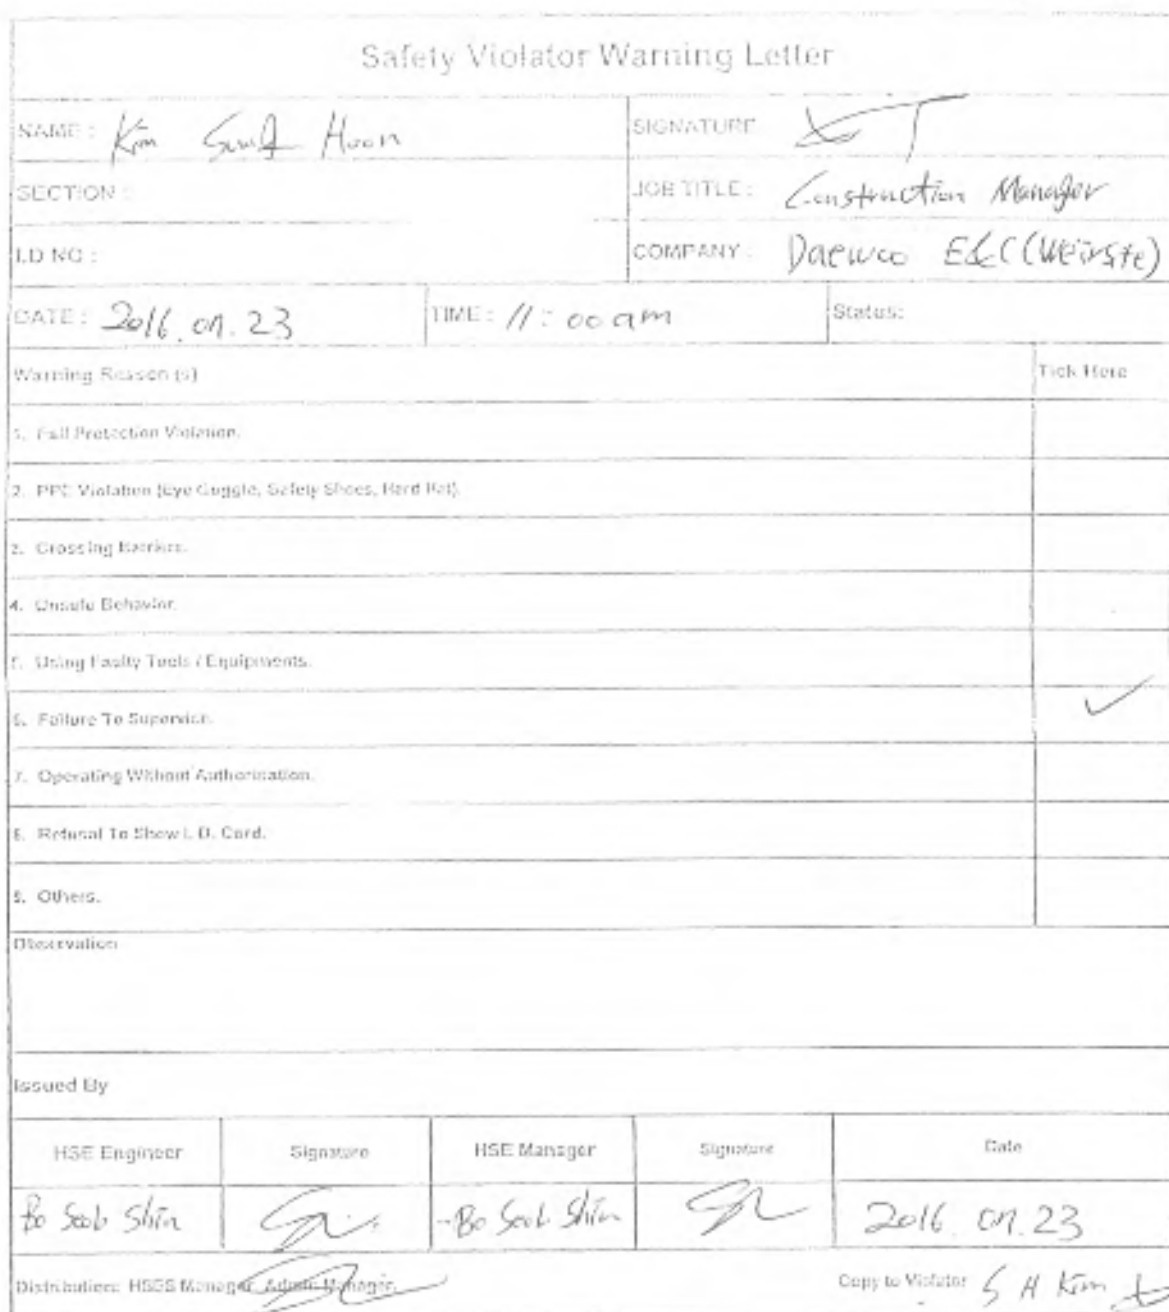 Safety Violator Warning Letter
NAME : Kim Hoon
SIGNATURE
SECTION :
JOB TITLE : Construction Manager
I.D NO :
COMPANY : Daewoo E&C
DATE : 2016. 07. 23
TIME : 11 : 00 am
Status:
Warning Reason (s)
Tick Here
1. Fall Protection Violation.
2. PPE Violation (Eye Goggle, Safety Shoes, Hard Hat).
3. Crossing Barriers.
4. Unsafe Behavior.
5. Using Faulty Tools / Equipments.
6. Failure To Supervise.
7. Operating Without Authorization.
8. Refusal To Show I. D. Card.
9. Others.
Observation
Issued By
HSE Engineer Signature HSE Manager Signature Date
Bo Seob Shin Bo Seob Shin 2016. 07. 23
Distribution: HSES Manager, Admin Manager.
Copy to Violator S H Kim